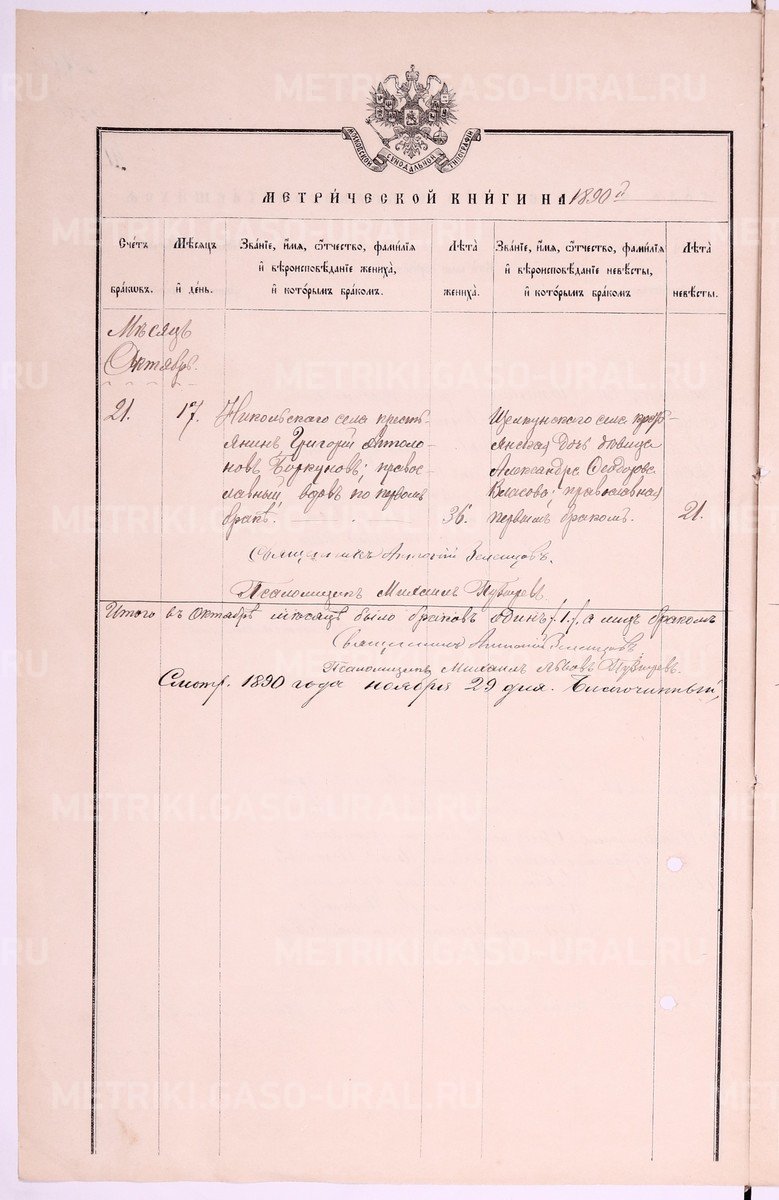 МОСКОВСКОЙ СѴНОДАЛЬНОЙ ТИПОГРАФІИ
МЕТРИ́ЧЕСКОЙ КНИ́ГИ НА 1890й
Сче́тъ бра́кѡвъ.
Мѣ́сяцъ и҆ де́нь.
Зва́нїе, и҆́мя, ѻ҆́тчество, фами́лїя и҆ вѣроисповѣ́данїе жениха̀, и҆ кото́рымъ бра́комъ.
Лѣ́та жениха̀.
Зва́нїе, и҆́мя, ѻ҆́тчество, фами́лїя и҆ вѣроисповѣ́данїе невѣ́сты, и҆ кото́рымъ бра́комъ
Лѣ́та невѣ́сты.
Мѣсяцъ
Октябрь.
21.
17.
Никольскаго села кресть-
янинъ Григорій
новъ Боркуновъ; правос-
лавный, вдовъ по первомъ
бракѣ.
36.
Щелкунскаго села кресть-
янская дочь девица
Александра Ѳеодорова
Власова; православная
первымъ бракомъ.
21.
Священникъ Зеленцовъ.
Псаломщикъ Михаилъ
Итого въ Октябрѣ месяцѣ было браковъ одинъ /1/, а лицъ бракомъ
Священникъ Зеленцовъ
Псаломщикъ Михаилъ Львовъ
Смотр. 1890 года ноября 29 дня. Благочинный,
METRIKI.GASO-URAL.RU